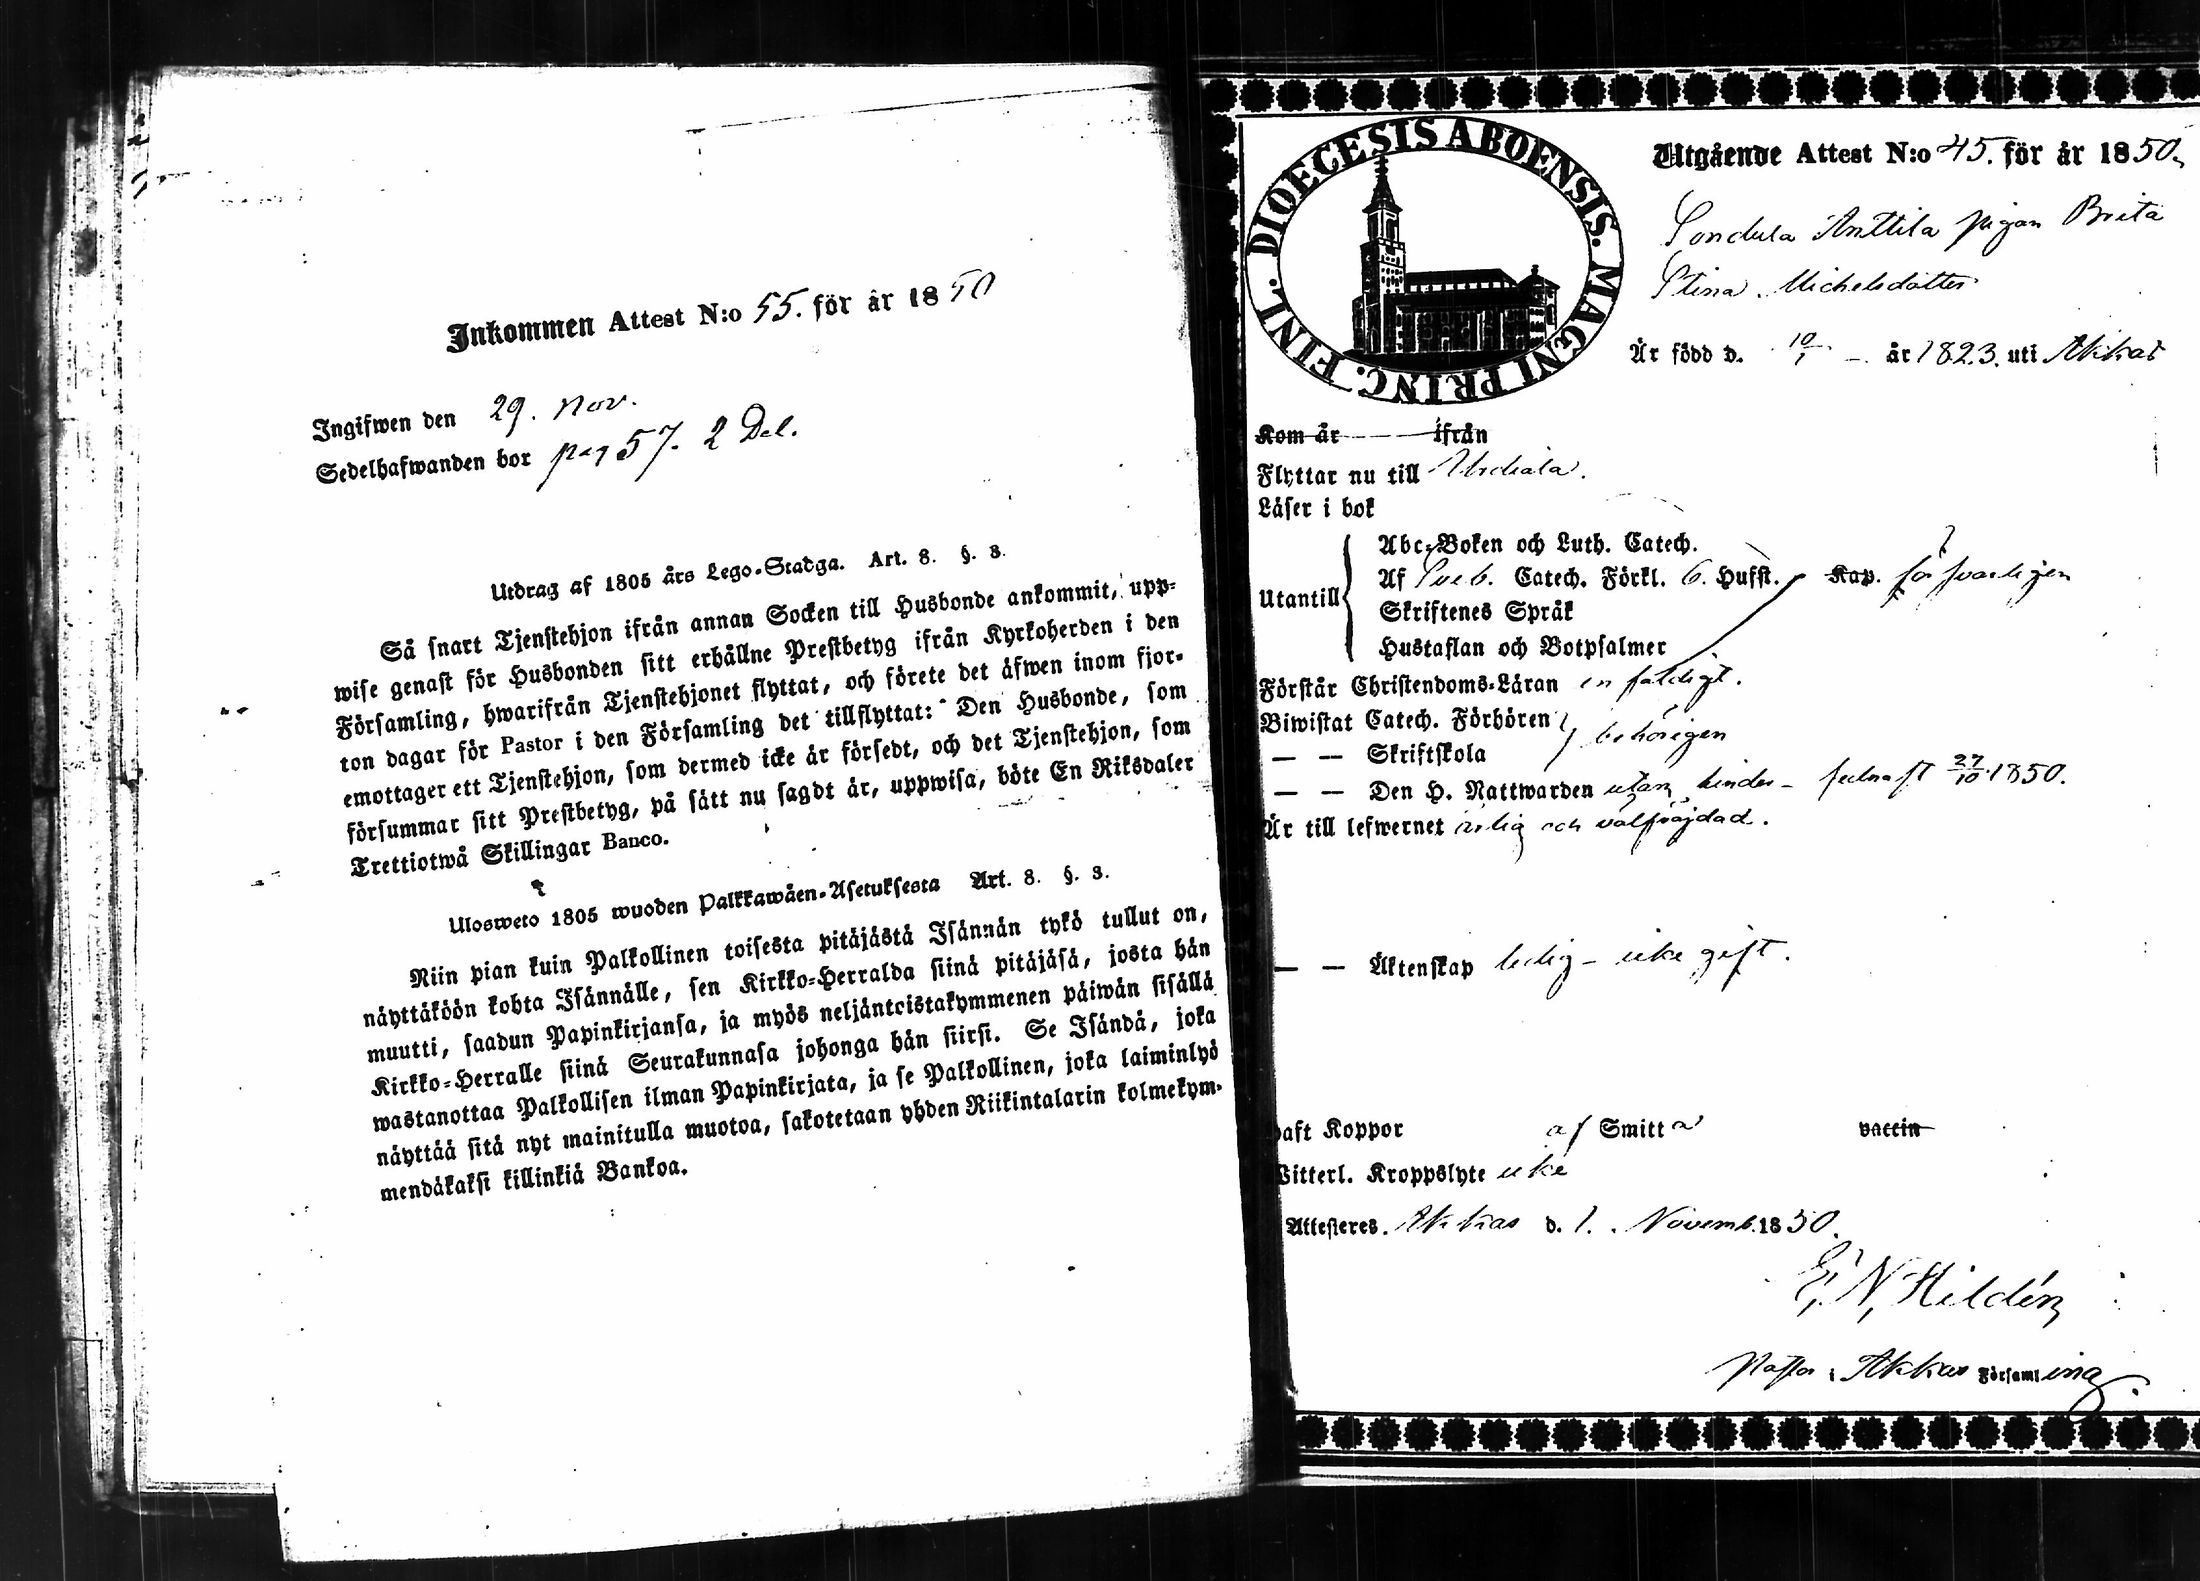 Inkommen Attest N:o 55. för år 1850
Ingifwen den 29. Nov.
Sedelhafwanden bor pag 57. 2 Del.
Utdrag af 1805 års Lego-Stadga. Art. 8. §. 3.
Så snart Tjenstehjon ifrån annan Socken till Husbonde ankommit, upp-
wise genast för Husbonden sitt erhållne Prestbetyg ifrån Kyrkoherden i den
Församling, hwarifrån Tjenstehjonet flyttat, och förete det äfwen inom fjor-
ton dagar för Pastor i den Församling det tillflyttat: Den Husbonde, som
emottager ett Tjenstehjon, som dermed icke är försedt, och det Tjenstehjon, som
försummar sitt Prestbetyg, på sätt nu sagdt är, uppwisa, böte En Riksdaler
Trettiotwå Skillingar Banco.
Ulosweto 1805 wuoden Palkkawäen-Asetuksesta Art. 8. §. 3.
Niin pian kuin Palkollinen toisesta pitäjästä Isännän tykö tullut on,
näyttäköön kohta Isännälle, sen Kirkko-Herralda siinä pitäjäsä, josta hän
muutti, saadun Papinkirjansa, ja myös neljäntoistakymmenen päiwän sisällä
Kirkko-Herralle siinä Seurakunnasa johonga hän siirsi. Se Isändä, joka
wastanottaa Palkollisen ilman Papinkirjata, ja se Palkollinen, joka laiminlyö
näyttää sitä nyt mainitulla muotoa, sakotetaan yhden Riikintalarin kolmekym-
mendäkaksi killinkiä Bankoa.
DIOECESIS ABOENSIS. MAGNI PRINC. FINL.
Utgående Attest N:o 45. för år 1850.
Anttila pigan Brita
Stina Michelsdotter
Är född d. 10/1 år 1823. uti Akkas
Kom år ifrån
Flyttar nu till Urdiala.
Läser i bok
Utantill
Abc-Boken och Luth. Catech.
Af Sveb. Catech. Förkl. 6. Hufst. Kap. försvarligen
Skriftenes Språk
Hustaflan och Botpsalmer
Förstår Christendoms-Läran enfaldigt.
Biwistat Catech. Förhören
— — Skriftskola behörigen
— — Den H. Nattwarden utan hinder - sednast 27/10 1850.
Är till lefwernet ärlig och välfräjdad.
— — Äktenskap ledig - icke gift.
haft Koppor af Smitta vaccin
Witterl. Kroppslyte icke
Attesteres. Akkas d. 1. Novemb. 1850.
E. N. Hildén
Pastor i Akkas Församling.